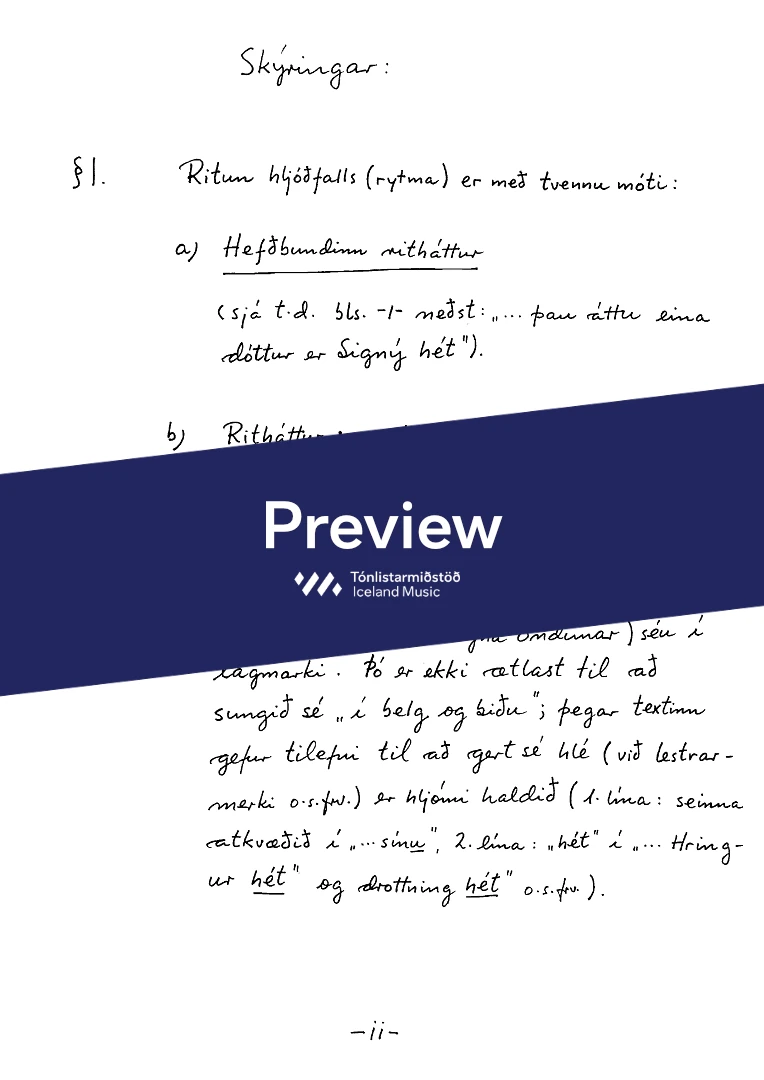 Skýringar:
§1. Ritun hljóðfalls (rytma) er með tvennu móti:
a) Hefðbundinn ritháttur
(sjá t.d. bls. -1- neðst: „... þau áttu eina
dóttur er Signý hét").
b) Ritháttur
Preview
Tónlistarmiðstöð
Iceland Music
öndunar) séu í
lágmarki. Þó er ekki ætlast til að
sungið sé „í belg og biðu"; þegar textinn
gefur tilefni til að gert sé hlé (við lestrar-
merki o.s.frv.) er hljómi haldið (1. lína: seinna
atkvæðið í „... sínu", 2. lína: „hét" í „... Hring-
ur hét" og drottning hét" o.s.frv.).
-ii-